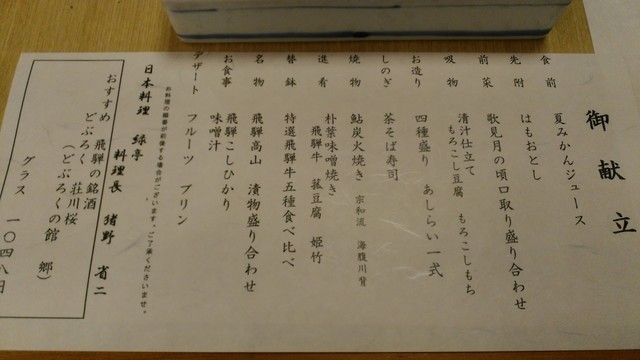 御献立
食前 夏みかんジュース
先附 はもおとし
前菜 歌見月の頃口取り盛り合わせ
吸物 清汁仕立て
もろこし豆腐 もろこしもち
お造り 四種盛り あしらい一式
しのぎ 茶そば寿司
焼物 鮎炭火焼き 宗和流 海腹川背
進肴 朴葉味噌焼き
飛騨牛 菰豆腐 姫竹
替鉢 特選飛騨牛五種食べ比べ
名物 飛騨高山 漬物盛り合わせ
お食事 飛騨こしひかり
味噌汁
デザート フルーツ プリン
お料理の順番が前後する場合がございます。ご了承くださいませ。
日本料理 緑亭
料理長 猪野 省二
おすすめ 飛騨の銘酒
どぶろく 荘川桜
(どぶろくの館 郷)
グラス 一〇四八円